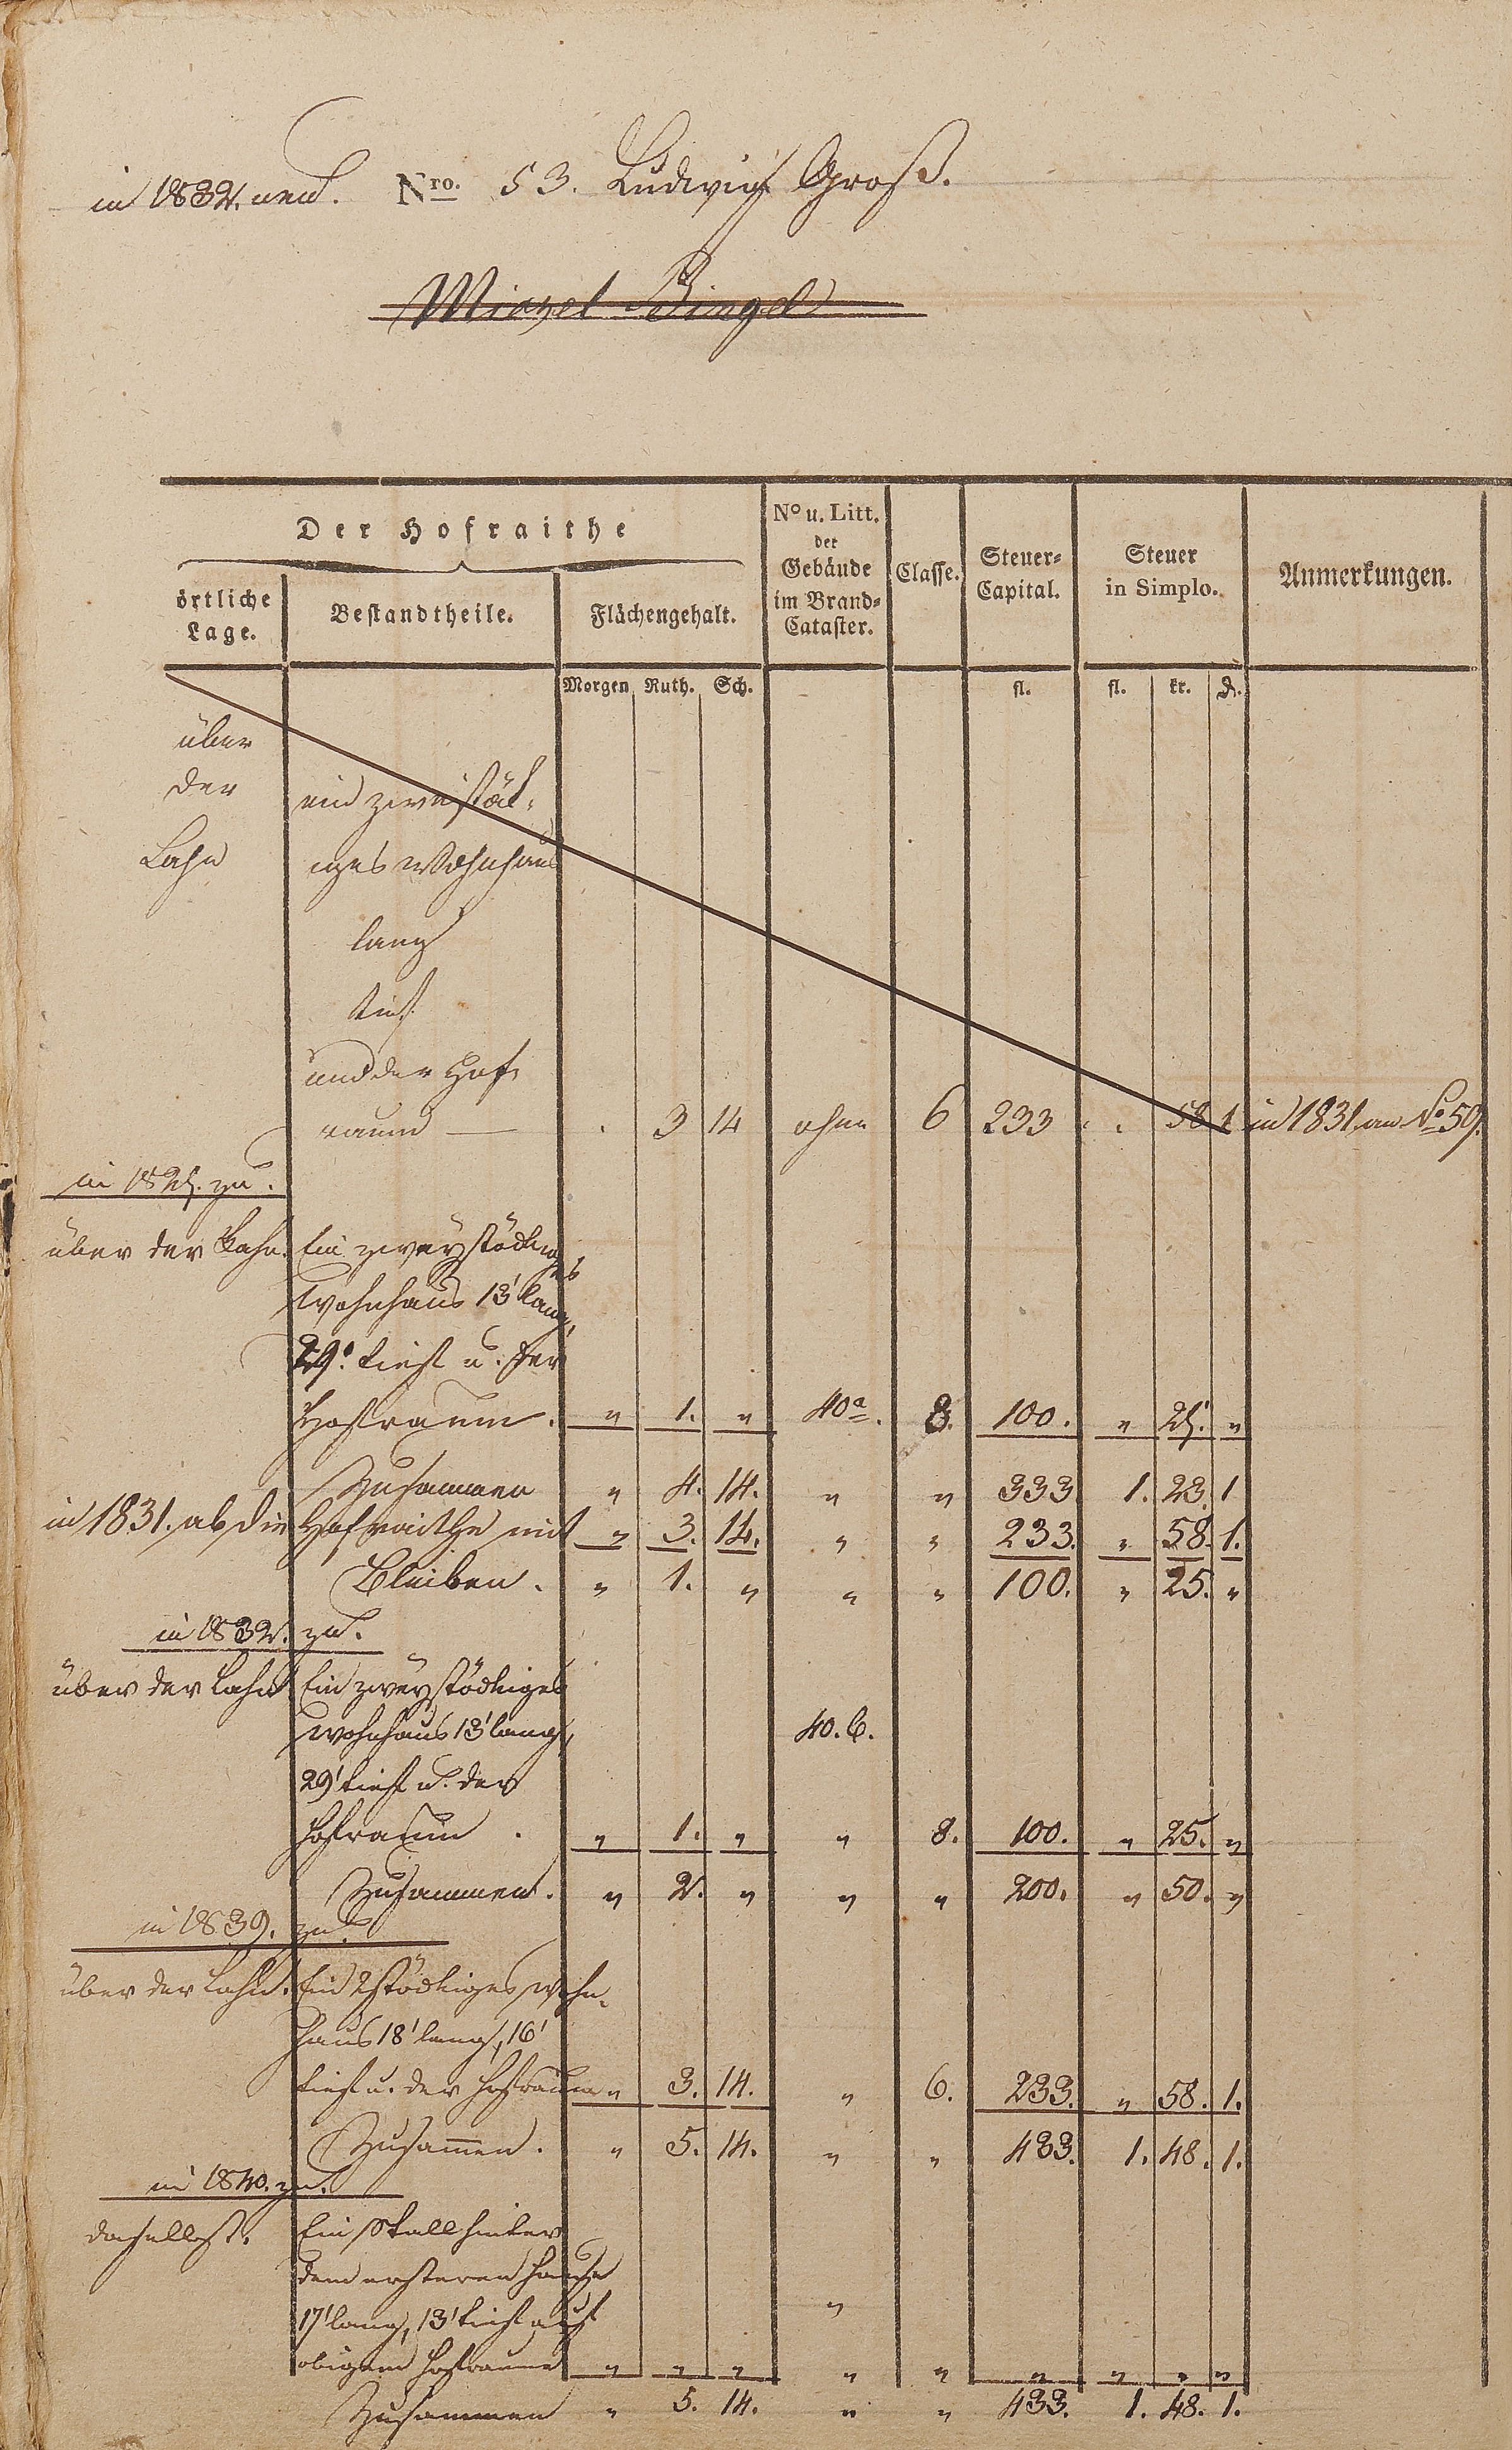 in 1832. neu. Nro. 53. Ludwig Groß.
Michel Bingel
Der Hofraithe
örtliche Lage.
Bestandtheile.
Flächengehalt.
No u. Litt. der Gebäude im Brand=Cataster.
Classe.
Steuer=Capital.
Steuer in Simplo.
Anmerkungen.
Morgen Ruth. Sch. fl. fl. kr. ₰.
über
der ein zweistök=
Lahn iges Wohnhaus
lang
tief
und der Hof=
raum — . 3 14 ohne 6 233 . . 58 1 in 1831 an No 59.
in 1825. zu.
über der Lahn. Ein zweystöckiges
Wohnhaus 13' lang,
29' tief u. der
Hofraum. " 1. " 40a. 8. 100. " 25. "
Zusammen " 4. 14. " " 333. 1. 23. 1
in 1831. ab die Hofraithe mit " 3. 14. " " 233. " 58. 1.
Bleiben. " 1. " " " 100. " 25. "
in 1832. zu.
über der Lahn Ein zweystöckiges
Wohnhaus 13' lang, 40. b.
29' tief u. der
Hofraum . " 1. " " 8. 100. " 25. "
Zusammen. " 2. " " " 200. " 50. "
in 1839. zu.
über der Lahn. Ein 2stöckiges Wohn=
haus 18' lang, 16'
tief u. der Hofraum " 3. 14. " 6. 233. " 58. 1.
Zusammen. " 5. 14. " " 433. 1. 48. 1.
in 1840. zu.
daselbst. Ein Stall hinter
dem ersteren Hause
17' lang, 13' tief auf "
obigem Hofraume " " " " " " " " "
Zusammen " 5. 14. " " 433. 1. 48. 1.